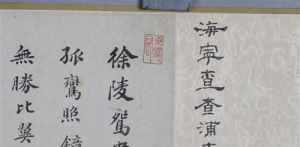 海寧查查浦
徐陵鴛
孤鸞照鏡
無勝比翼